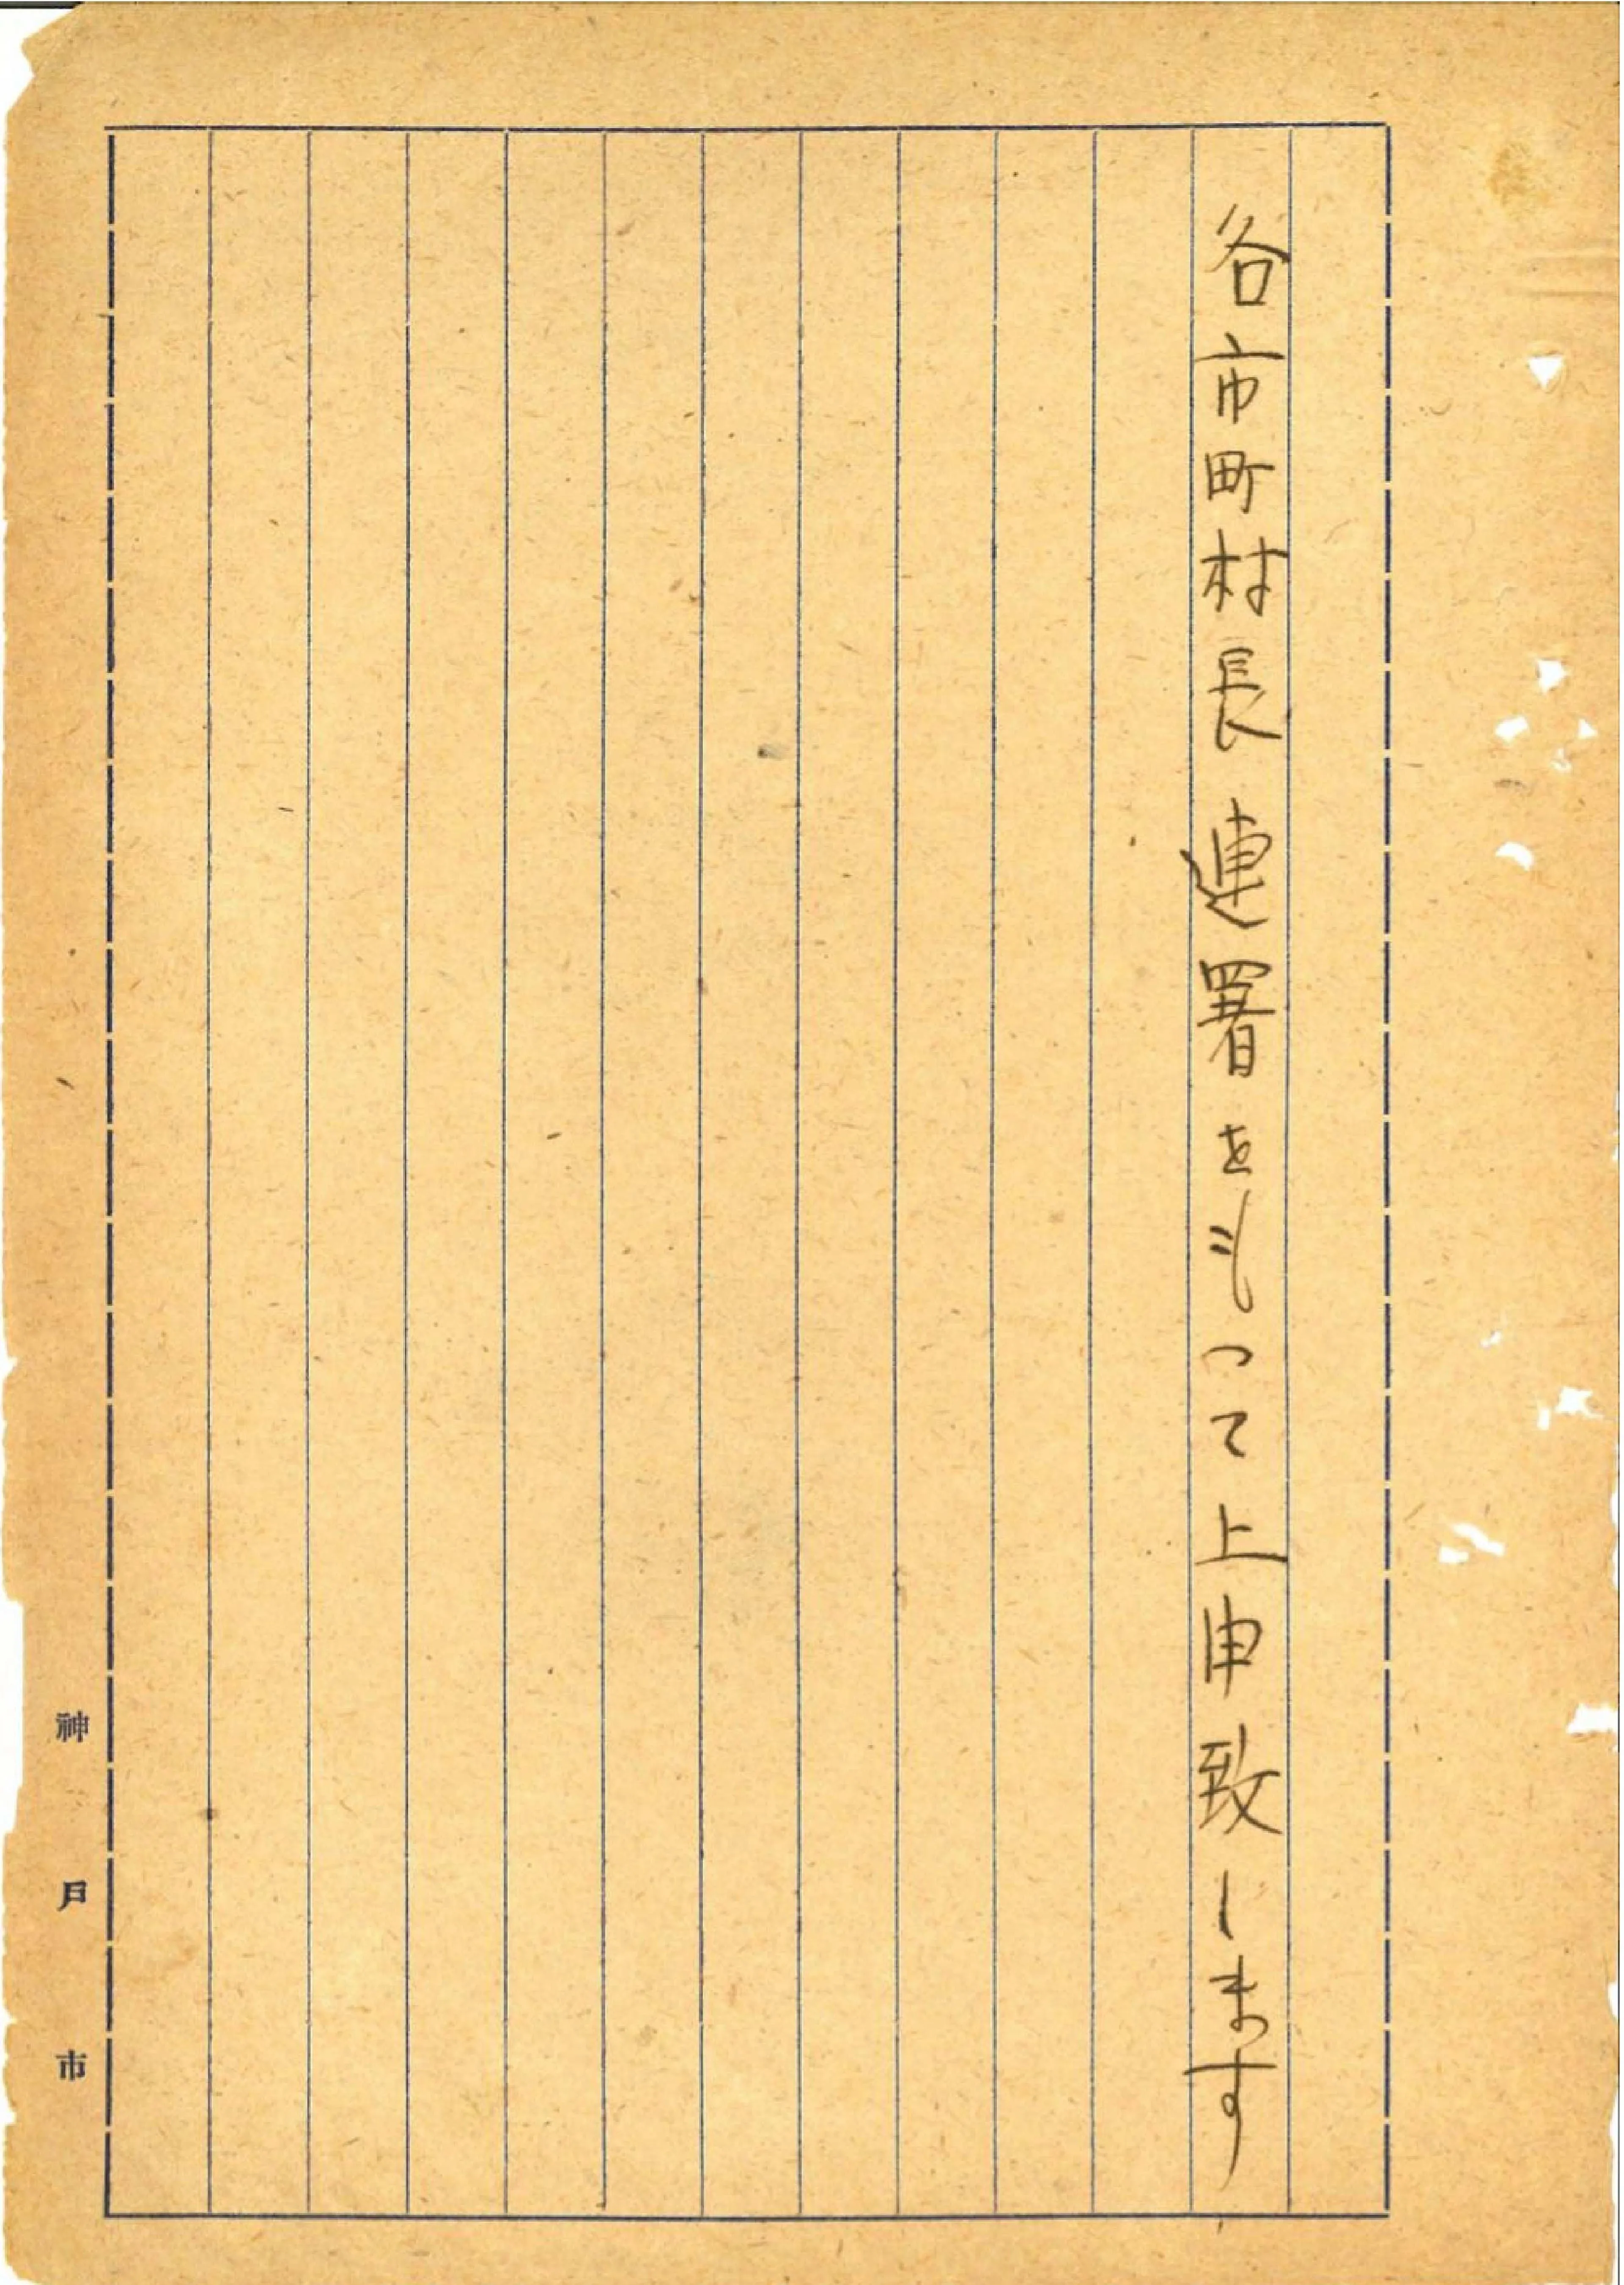 各市町村長連署をもつて上申致します
神戸市